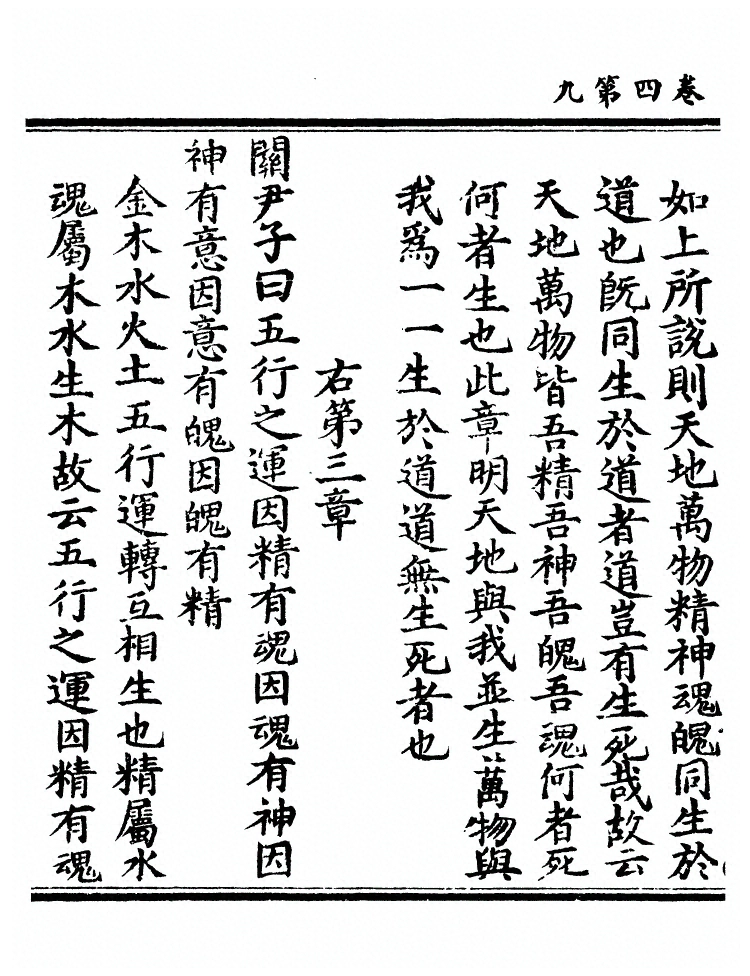 卷四第九
如上所說則天地萬物精神魂魄同生於
道也旣同生於道者道豈有生死哉故云
天地萬物皆吾精吾神吾魄吾魂何者死
何者生也此章明天地與我並生萬物與
我爲一一生於道道無生死者也
右第三章
關尹子曰五行之運因精有魂因魂有神因
神有意因意有魄因魄有精
金木水火土五行運轉互相生也精屬水
魂屬木水生木故云五行之運因精有魂